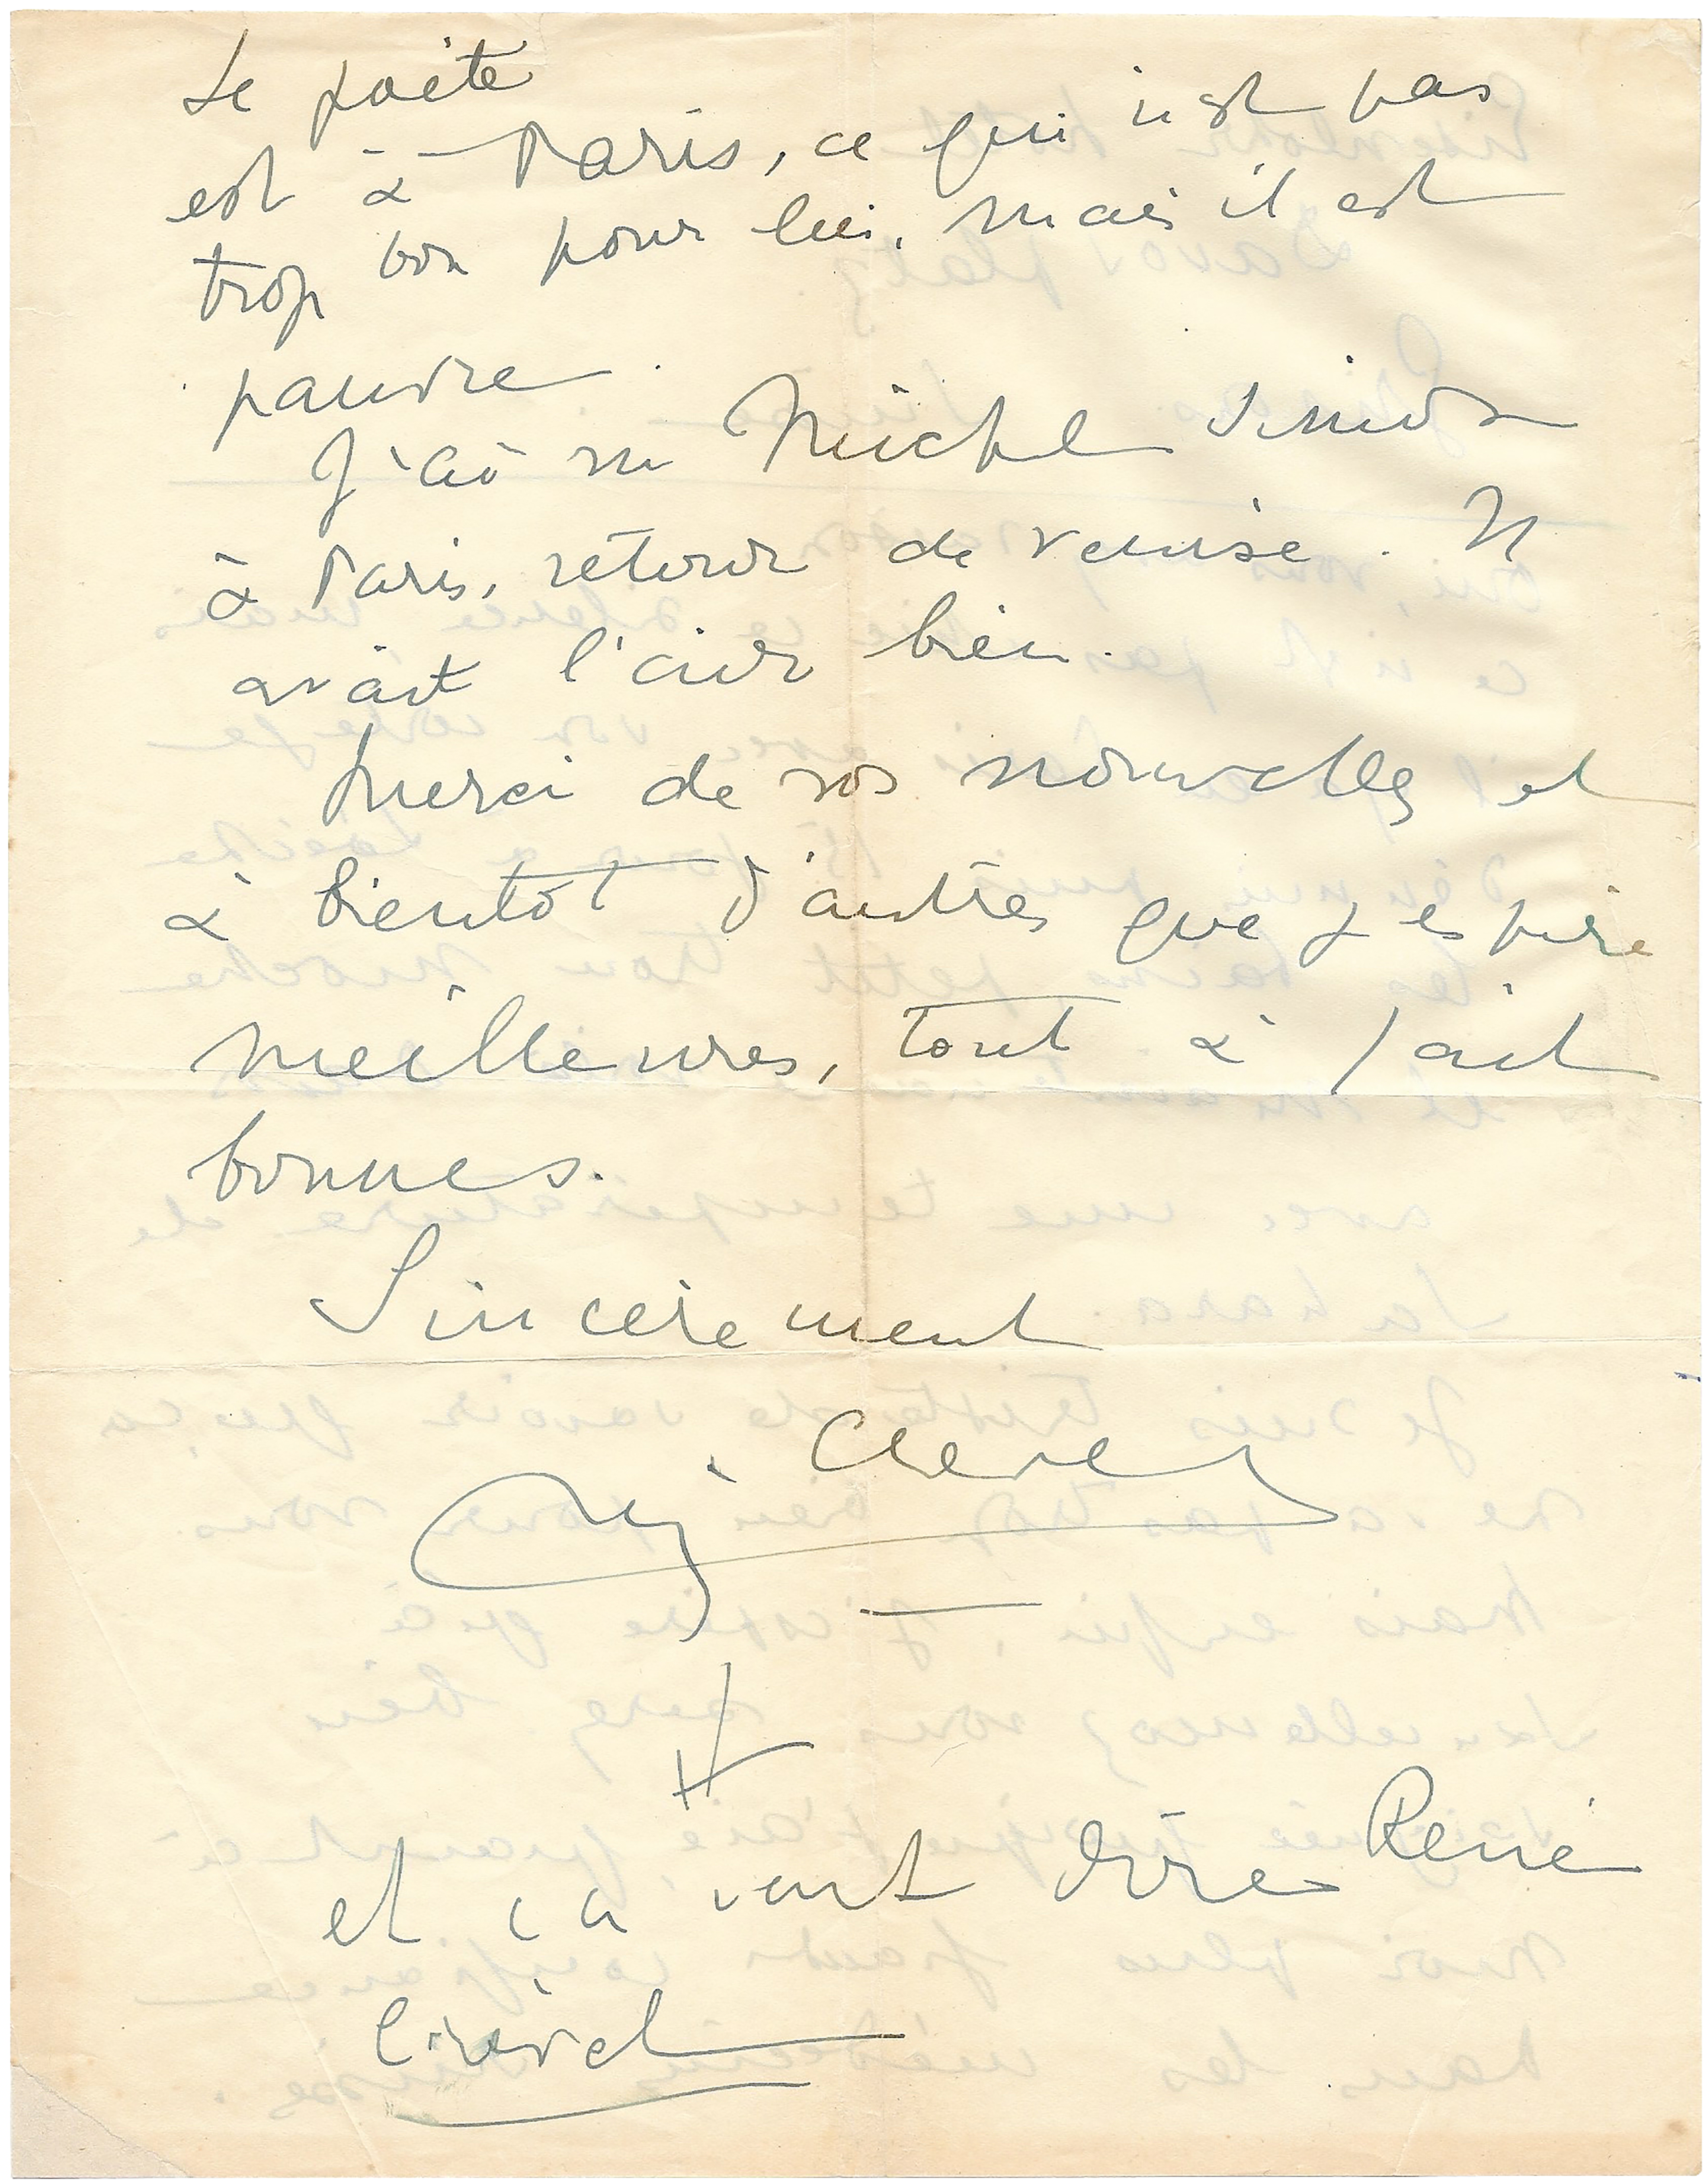 Le poète
est à Paris, ce qui n'est pas
trop bon pour lui, mais il est
pauvre.
J'ai vu Michel
à Paris, retour de Venise. Il
avait l'air bien.
Merci de vos nouvelles et
à bientôt d'autres que j'espère
meilleures, tout à fait
bonnes.
Sincèrement
et ça veut dire René
Crevel